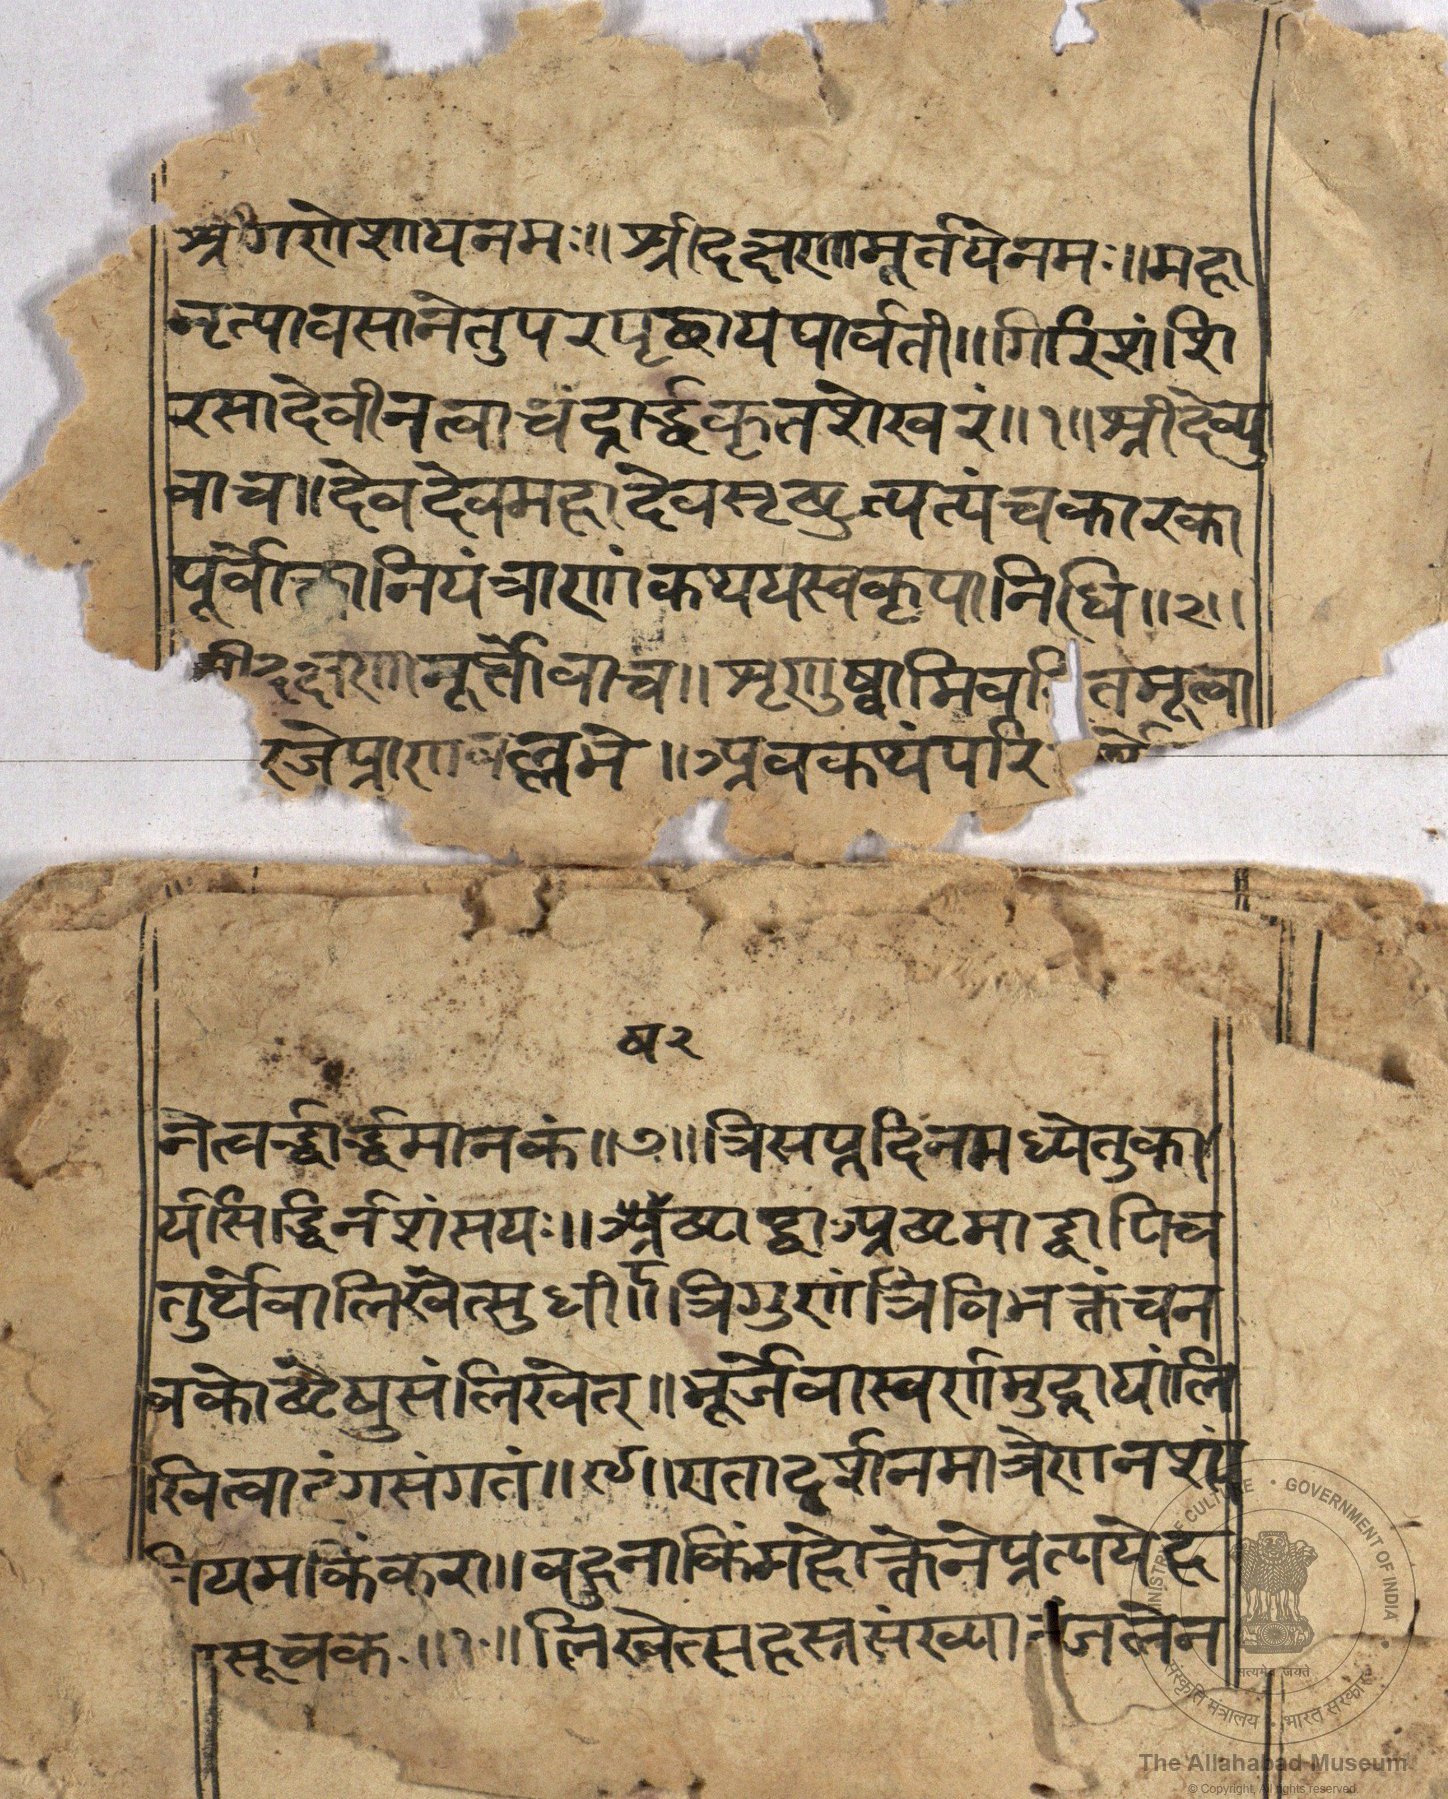 श्रीगणेशायनमः॥ श्रीदक्षणामूर्तयेनमः॥ महा
नृत्यावसानेतुपरपृछायपार्वती॥ गिरिशंशि
रसादेवीनत्वाचंद्रार्द्धकृतशेखरं॥१॥ श्रीदेव्यु
वाच॥ देवदेवमहादेवसृष्युत्पत्यंचकारका
पूर्वोक्तानियंत्राणांकथयस्वकृपानिधि॥२॥
श्रीदक्षणामूर्त्तोवाच॥ शृणुष्वामिव तमूत्वा
रजेप्राणवल्लभे॥ अवकथंपरि
ष२
नेत्वर्द्धार्द्धमानकं॥७॥ त्रिसप्तदिनमध्येतुका
र्यसिद्धिर्नशंसयः॥ अष्टाद्वाअष्टमाद्वापिच
तुर्थेवालिखेत्सुधी॥ त्रिगुणंत्रिविभक्तंचन
वकोष्टेषुसंलिखेत्॥ भूर्जेवास्वर्णमुद्रायांलि
खित्वा गसंगतं॥९॥ दर्शनमात्रेणनशं
यमकिंकरा॥ बहुनाकिंमहोक्तेनेप्रत्ययेह
सूचके॥१॥ लिखेत्सहस्रसंख्या जलेन
MINISTRY OF CULTURE · GOVERNMENT OF INDIA
सत्यमेव जयते
संस्कृति मंत्रालय · भारत सरकार
The Allahabad Museum
© Copyright, All rights reserved.